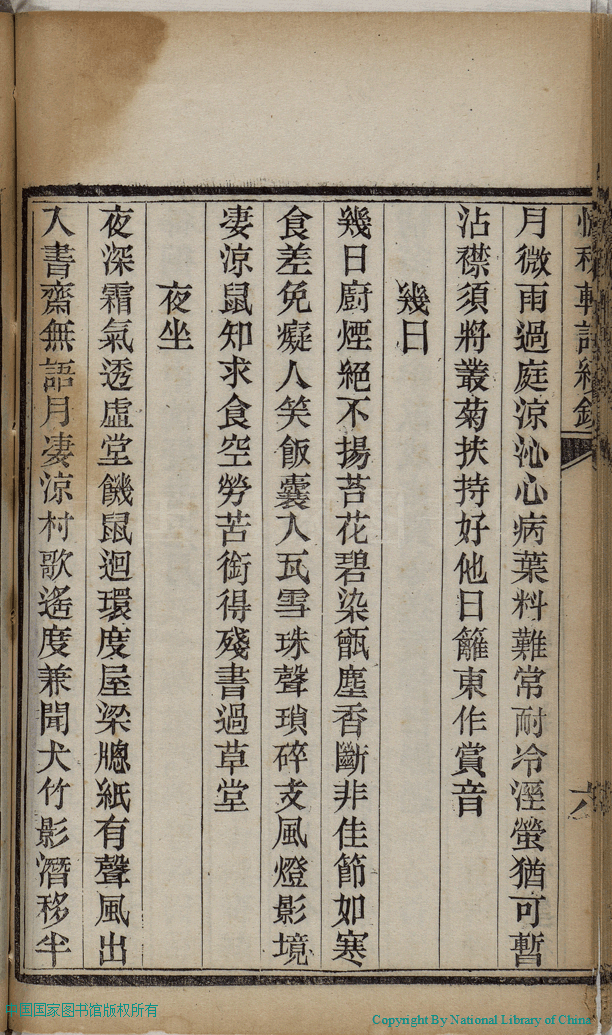 月微雨過庭涼沁心病葉料難常耐冷溼螢猶可暫
沾襟須將叢菊扶持好他日籬東作賞音
幾日
幾日廚煙絕不揚苔花碧染甑塵香斷非佳節如寒
食差免癡人笑飯囊入瓦雪珠聲瑣碎支風燈影境
凄涼鼠知求食空勞苦銜得殘書過草堂
夜坐
夜深霜氣透虛堂饑鼠迴環度屋梁牕紙有聲風出
入書齋無語月凄涼村歌遙度兼聞犬竹影潛移半
六
中国国家图书馆版权所有
Copyright By National Library of China